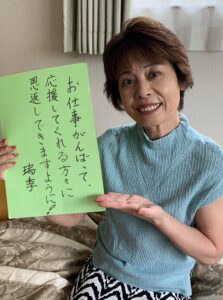 お仕事がんばって、
応援してくれる方々に
恩返しできますように!
瑞季